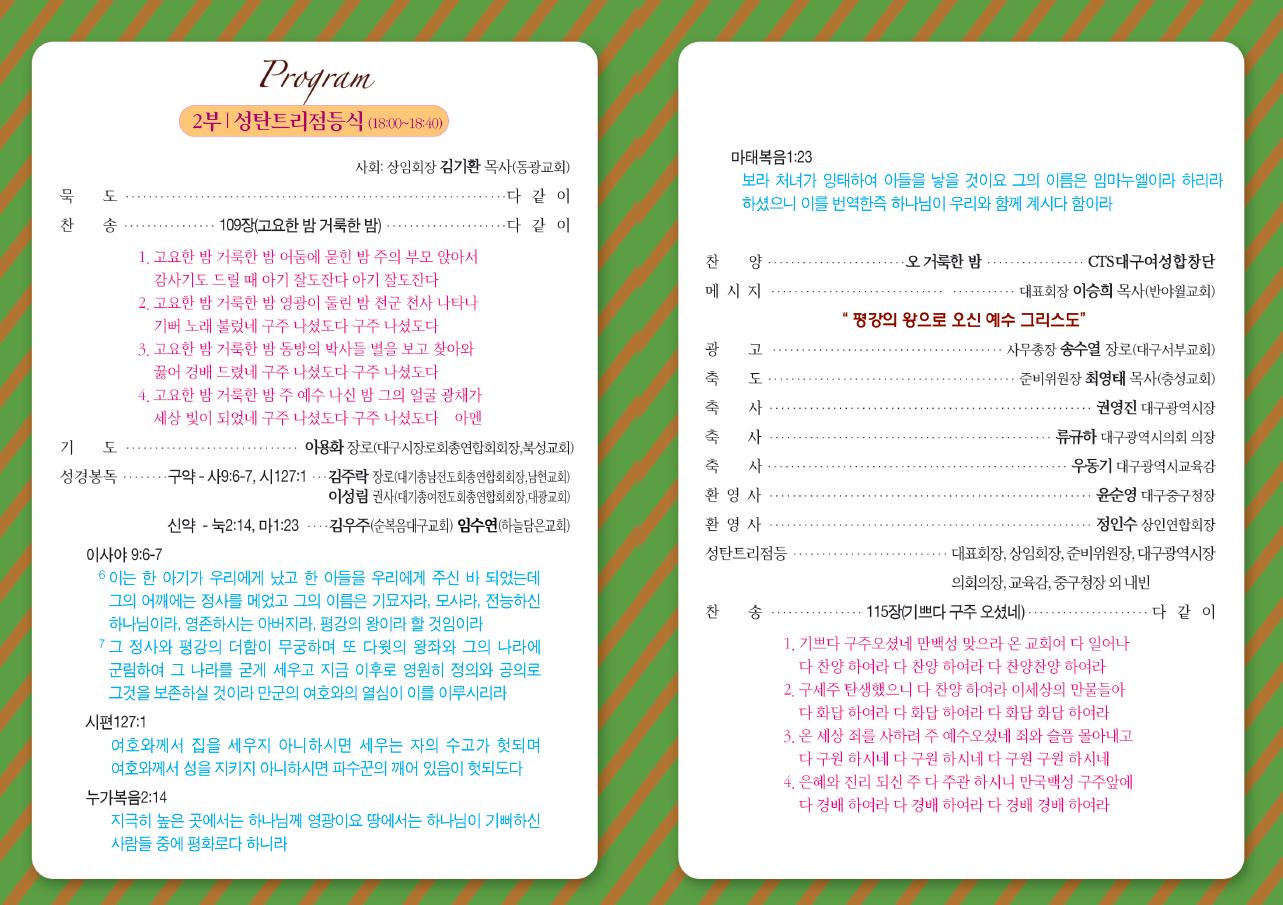 Program
2부 | 성탄트리점등식 (18:00~18:40)
사회: 상임회장 김기환 목사(동광교회)
묵 도 ········ 다 같 이
찬 송 ········ 109장(고요한 밤 거룩한 밤) ········ 다 같 이
1. 고요한 밤 거룩한 밤 어둠에 묻힌 밤 주의 부모 앉아서
감사기도 드릴 때 아기 잘도잔다 아기 잘도잔다
2. 고요한 밤 거룩한 밤 영광이 둘린 밤 천군 천사 나타나
기뻐 노래 불렀네 구주 나셨도다 구주 나셨도다
3. 고요한 밤 거룩한 밤 동방의 박사들 별을 보고 찾아와
꿇어 경배 드렸네 구주 나셨도다 구주 나셨도다
4. 고요한 밤 거룩한 밤 주 예수 나신 밤 그의 얼굴 광채가
세상 빛이 되었네 구주 나셨도다 구주 나셨도다 아멘
기 도 ········ 이용화 장로(대구시장로회총연합회회장,북성교회)
성경봉독 ········ 구약 - 사9:6-7, 시127:1 ··· 김주락 장로(대기총남전도회총연합회회장,남현교회)
이성림 권사(대기총여전도회총연합회회장,대광교회)
신약 - 눅2:14, 마1:23 ···· 김우주(순복음대구교회) 임수연(하늘담은교회)
이사야 9:6-7
6 이는 한 아기가 우리에게 났고 한 아들을 우리에게 주신 바 되었는데
그의 어깨에는 정사를 메었고 그의 이름은 기묘자라, 모사라, 전능하신
하나님이라, 영존하시는 아버지라, 평강의 왕이라 할 것임이라
7 그 정사와 평강의 더함이 무궁하며 또 다윗의 왕좌와 그의 나라에
군림하여 그 나라를 굳게 세우고 지금 이후로 영원히 정의와 공의로
그것을 보존하실 것이라 만군의 여호와의 열심이 이를 이루시리라
시편127:1
여호와께서 집을 세우지 아니하시면 세우는 자의 수고가 헛되며
여호와께서 성을 지키지 아니하시면 파수꾼의 깨어 있음이 헛되도다
누가복음2:14
지극히 높은 곳에서는 하나님께 영광이요 땅에서는 하나님이 기뻐하신
사람들 중에 평화로다 하니라
마태복음1:23
보라 처녀가 잉태하여 아들을 낳을 것이요 그의 이름은 임마누엘이라 하리라
하셨으니 이를 번역한즉 하나님이 우리와 함께 계시다 함이라
찬 양 ········ 오 거룩한 밤 ········ CTS대구여성합창단
메 시 지 ········ 대표회장 이승희 목사(반야월교회)
“ 평강의 왕으로 오신 예수 그리스도”
광 고 ········ 사무총장 송수열 장로(대구서부교회)
축 도 ········ 준비위원장 최영태 목사(충성교회)
축 사 ········ 권영진 대구광역시장
축 사 ········ 류규하 대구광역시의회 의장
축 사 ········ 우동기 대구광역시교육감
환 영 사 ········ 윤순영 대구중구청장
환 영 사 ········ 정인수 상인연합회장
성탄트리점등 ········ 대표회장, 상임회장, 준비위원장, 대구광역시장
의회의장, 교육감, 중구청장 외 내빈
찬 송 ········ 115장(기쁘다 구주 오셨네) ········ 다 같 이
1. 기쁘다 구주오셨네 만백성 맞으라 온 교회여 다 일어나
다 찬양 하여라 다 찬양 하여라 다 찬양찬양 하여라
2. 구세주 탄생했으니 다 찬양 하여라 이세상의 만물들아
다 화답 하여라 다 화답 하여라 다 화답 화답 하여라
3. 온 세상 죄를 사하려 주 예수오셨네 죄와 슬픔 몰아내고
다 구원 하시네 다 구원 하시네 다 구원 구원 하시네
4. 은혜와 진리 되신 주 다 주관 하시니 만국백성 구주앞에
다 경배 하여라 다 경배 하여라 다 경배 경배 하여라